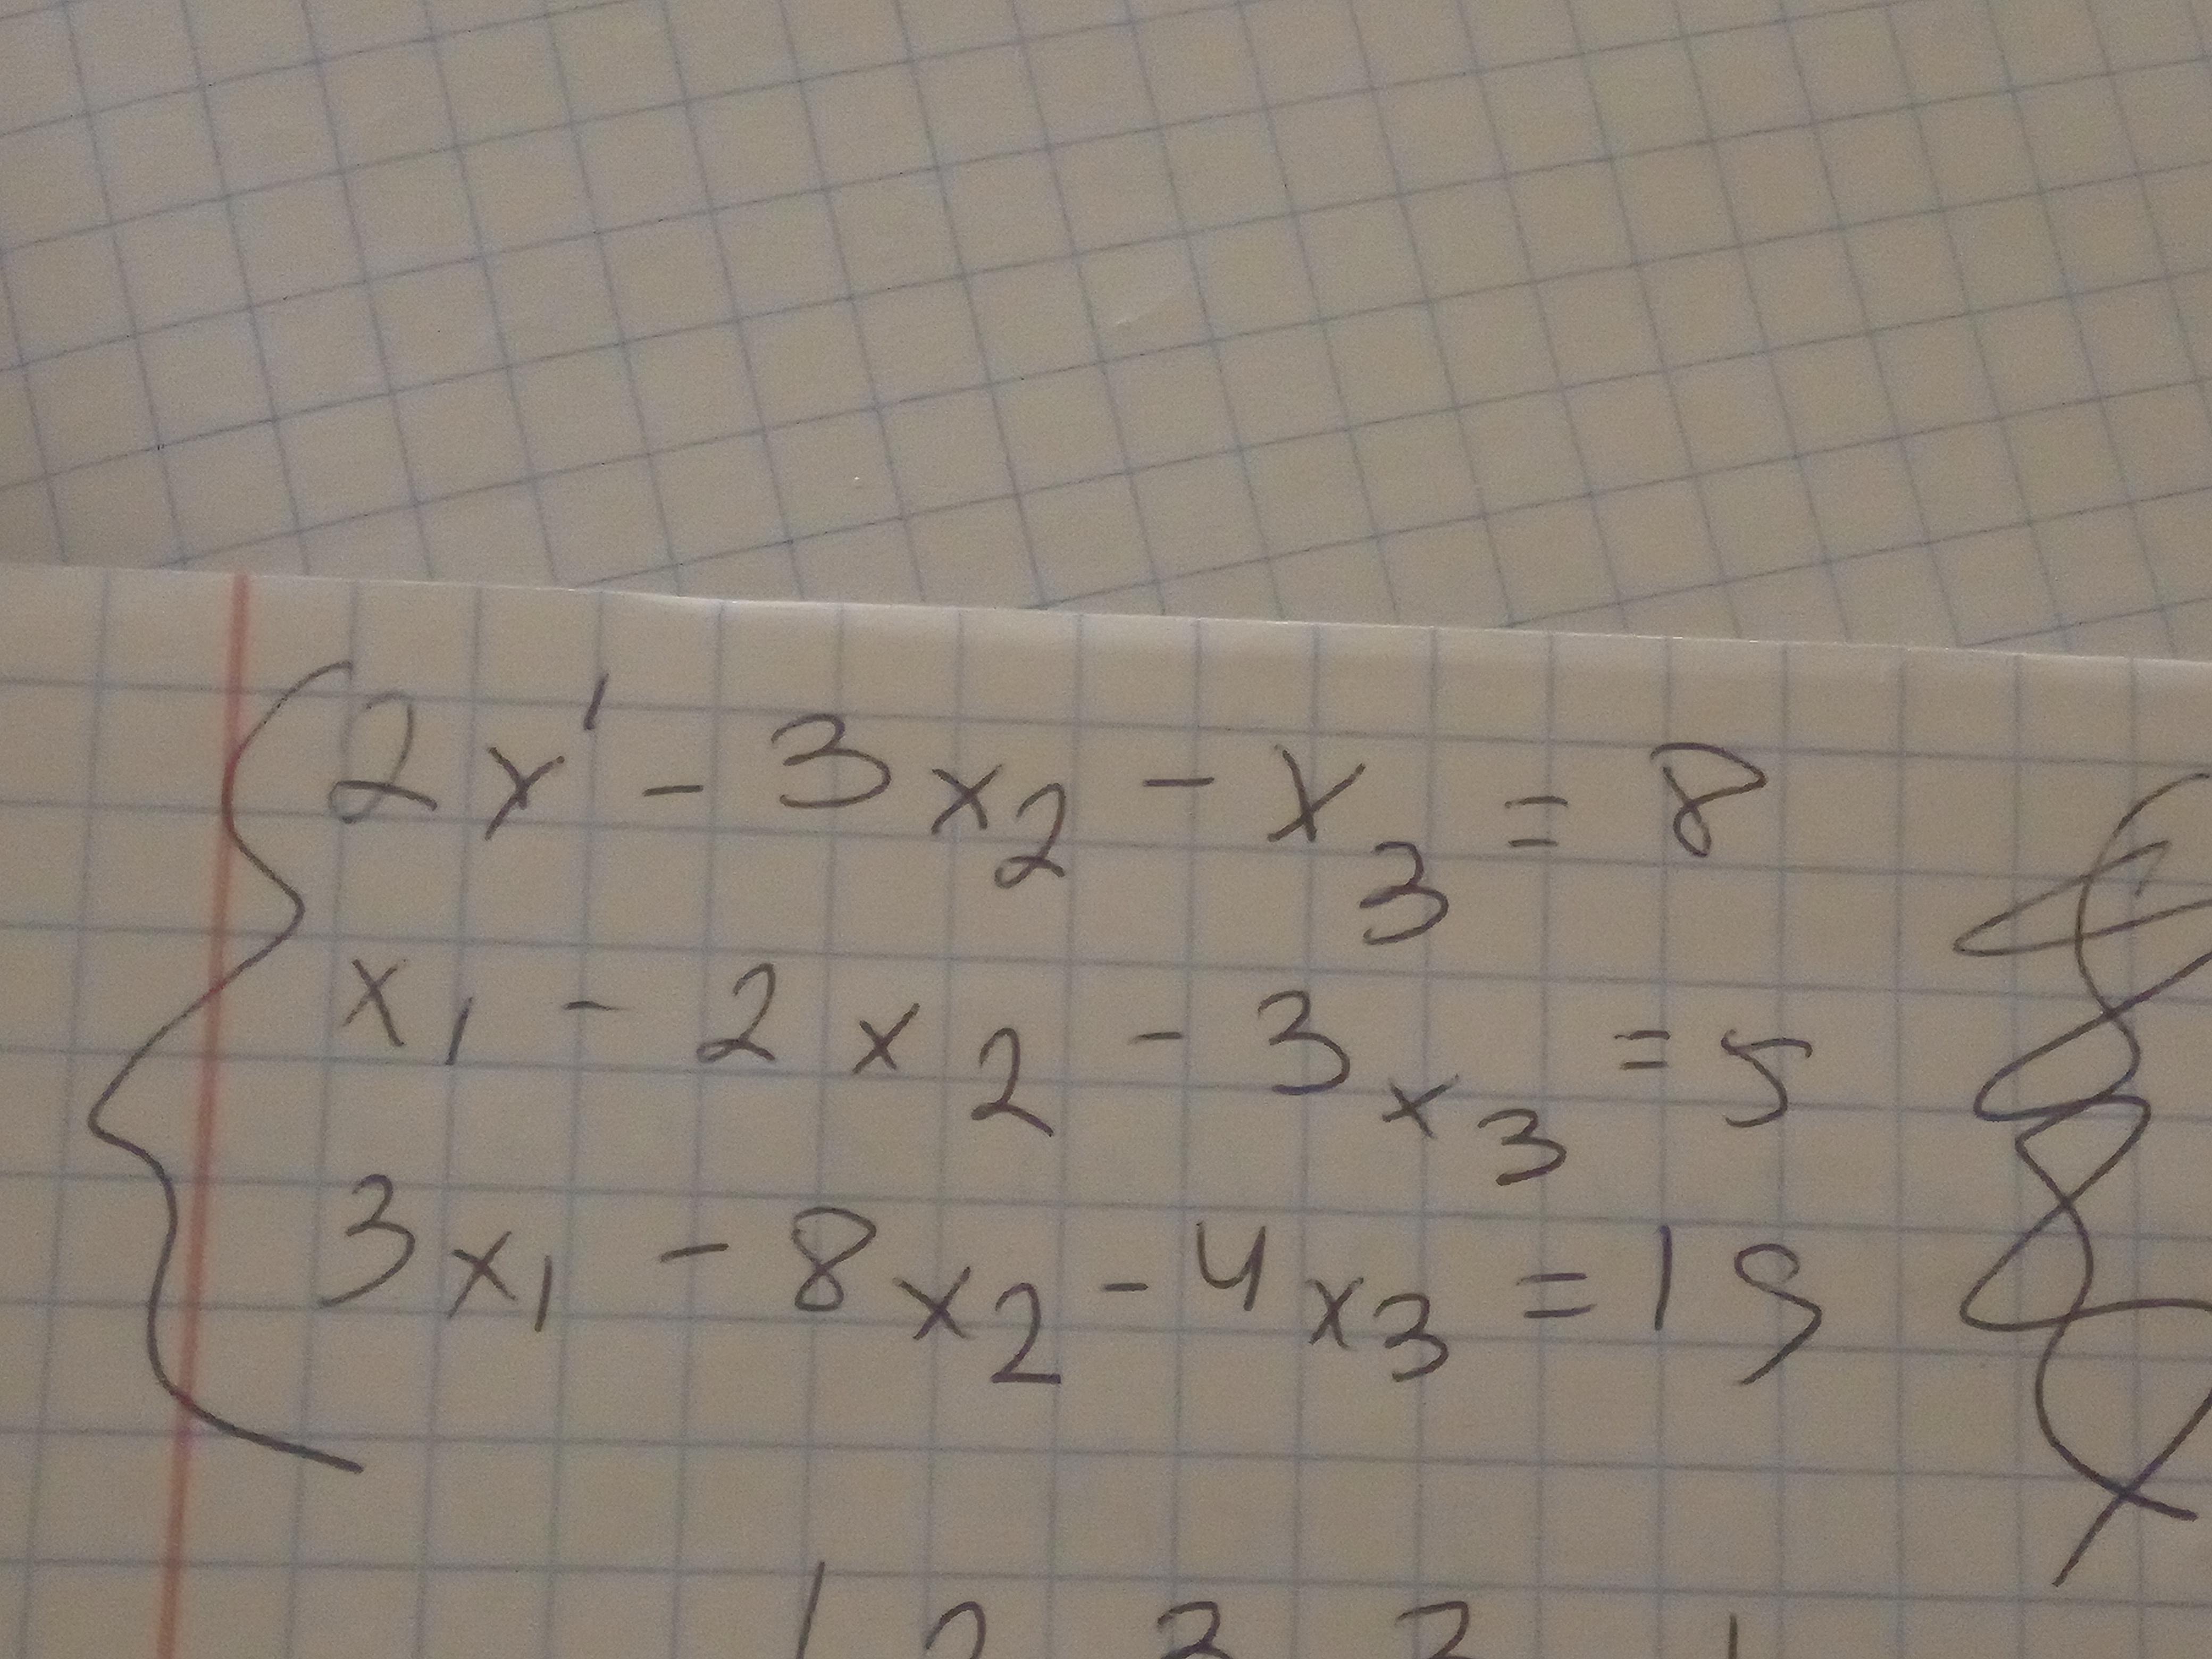 2x' - 3x₂ - x₃ = 8
x₁ - 2x₂ - 3x₃ = 5
3x₁ - 8x₂ - 4x₃ = 19